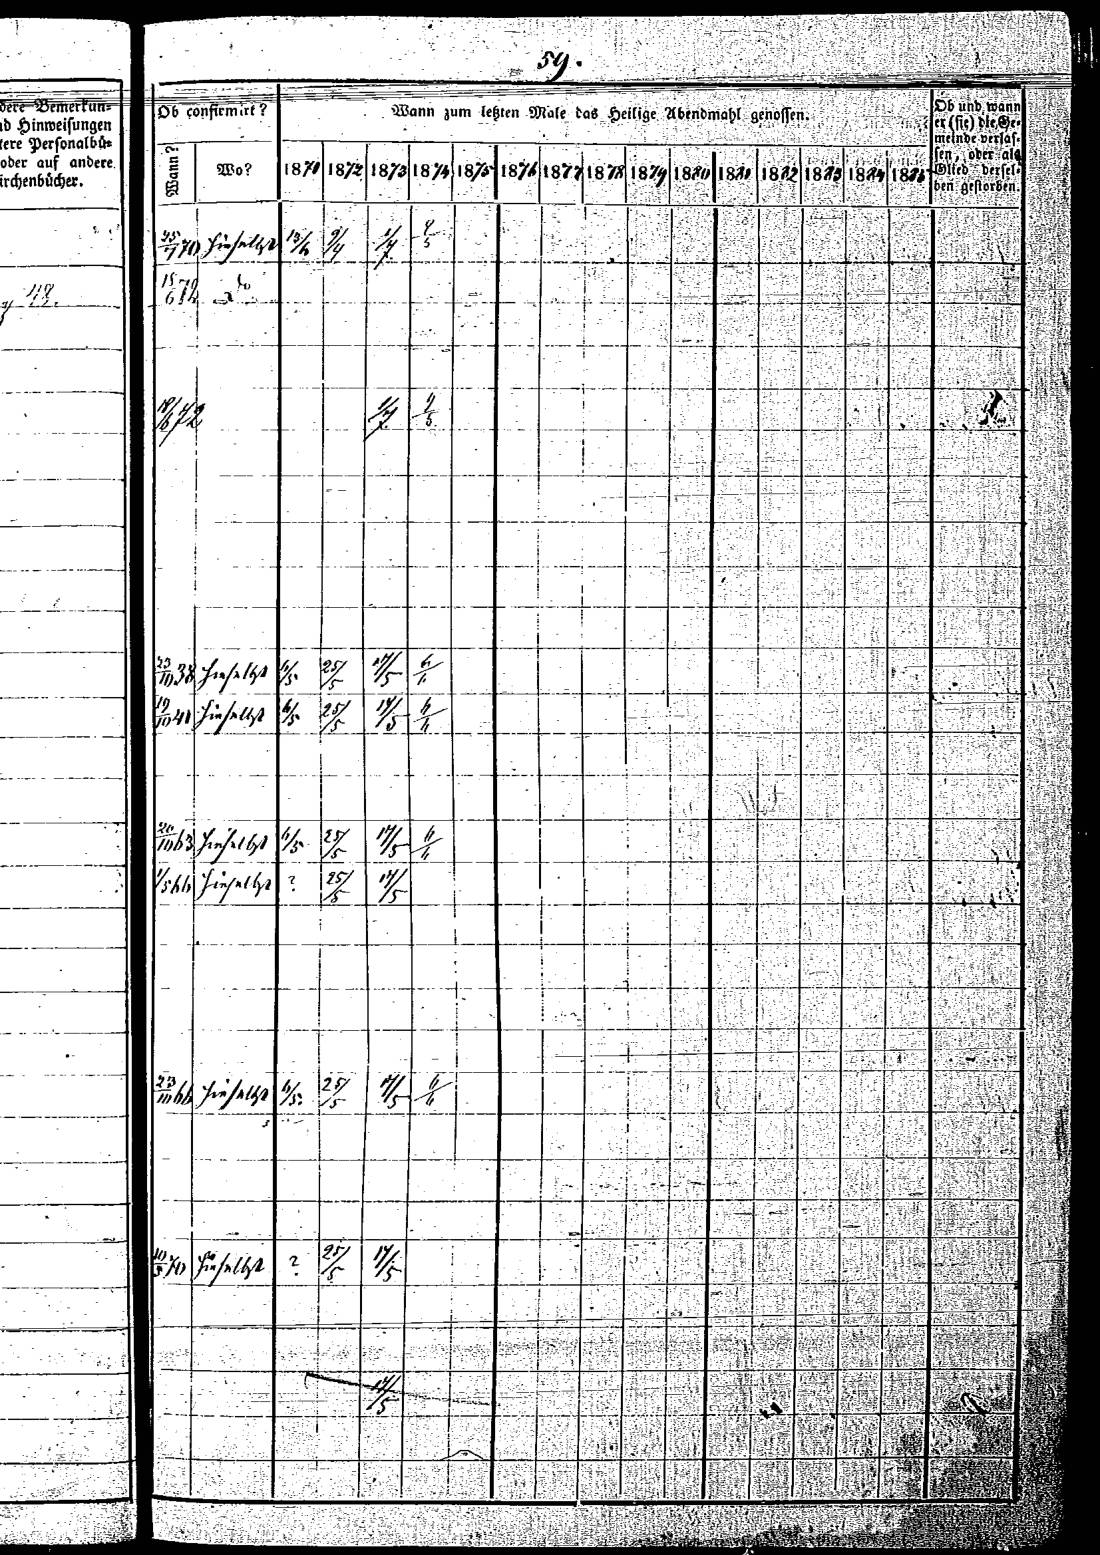 59.
dere Bemerkun-
nd Hinweisungen
tere Personalbü-
oder auf andere
irchenbücher.
Ob confirmirt?
Wann zum letzten Male das Heilige Abendmahl genossen.
Ob und wann
er (sie) die Ge-
meinde verlas-
sen, oder als
Glied dersel-
ben gestorben.
Wann? Wo? 1871 1872 1873 1874 1875 1876 1877 1878 1879 1880 1881 1882 1883 1884 1885
70 hieselbst 9/4 1/7
15/6 72 do
18/6 72 1/7
23/10 38 hieselbst 6/5 25/5 17/5 6/6
19/10 41 hieselbst 6/5 25/5 17/5 6/6
20/10 63 hieselbst 6/5 25/5 17/5 6/6
1/5 66 hieselbst ? 25/5 17/5
23/10 66 hieselbst 6/5 25/5 17/5 6/6
10/5 70 hieselbst ? 25/5 17/5
17/5